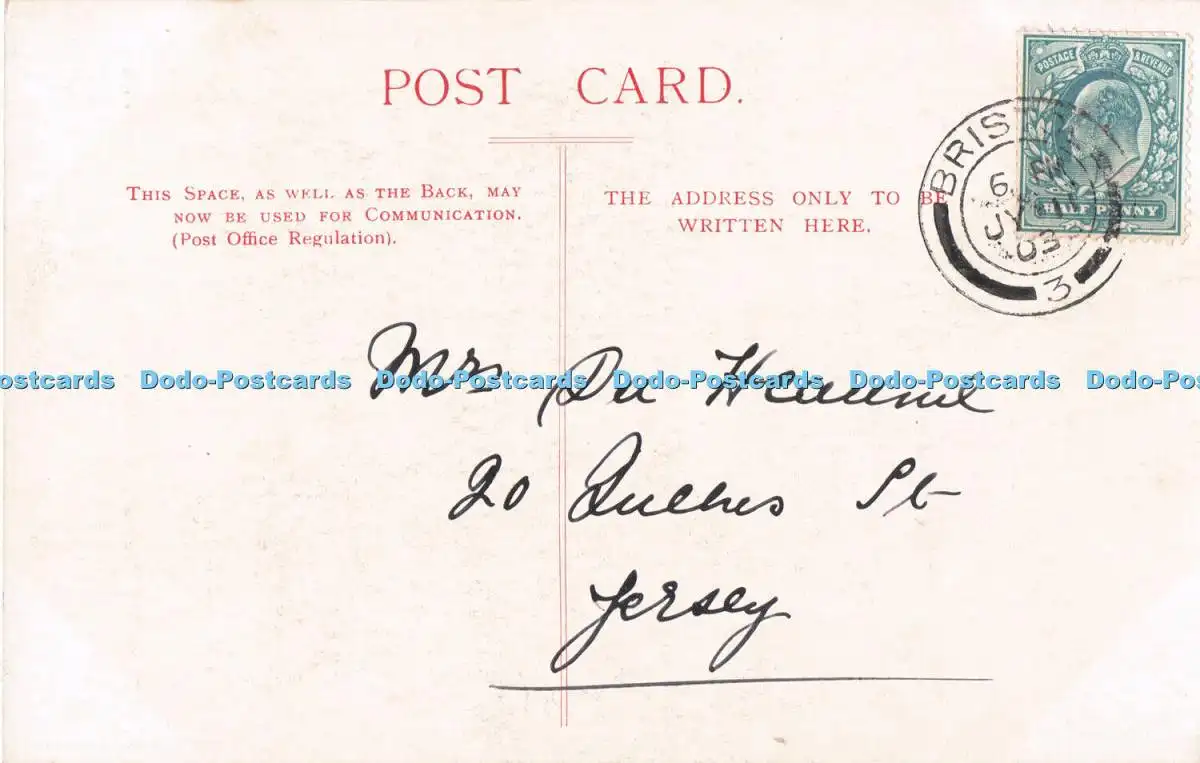 POST CARD.
POSTAGE & REVENUE
THIS SPACE, AS WELL AS THE BACK, MAY
NOW BE USED FOR COMMUNICATION.
(Post Office Regulation).
THE ADDRESS ONLY TO BE
WRITTEN HERE.
HALF PENNY
BRIS
6
JY 11
03
3
Mrs Du Heaume
Dodo-Postcards Dodo-Postcards Dodo-Postcards Dodo-Postcards Dodo-Postcards
20 St
Jersey